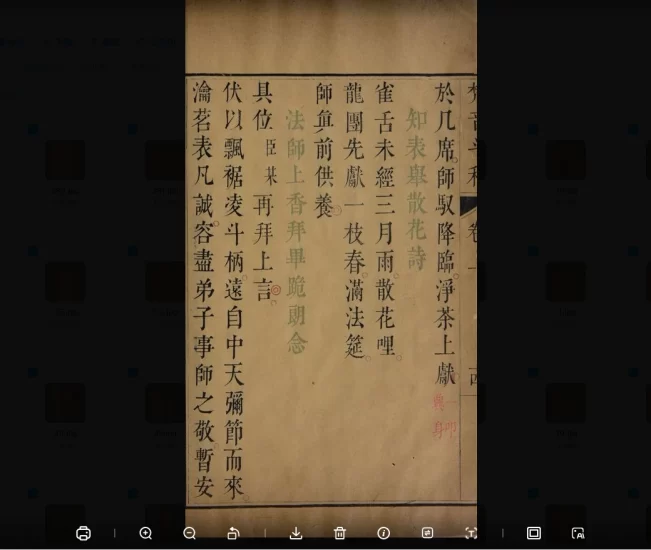 於几席師馭降臨淨茶上獻
知表舉散花詩
雀舌未經三月雨散花哩
龍團先獻一枝春滿法筵
師眞前供養
法師上香拜畢跪朝念
具位臣某再拜上言
伏以飄裾凌斗柄遠自中天彌節而來
瀹茗表凡誠容盡弟子事師之敬暫安